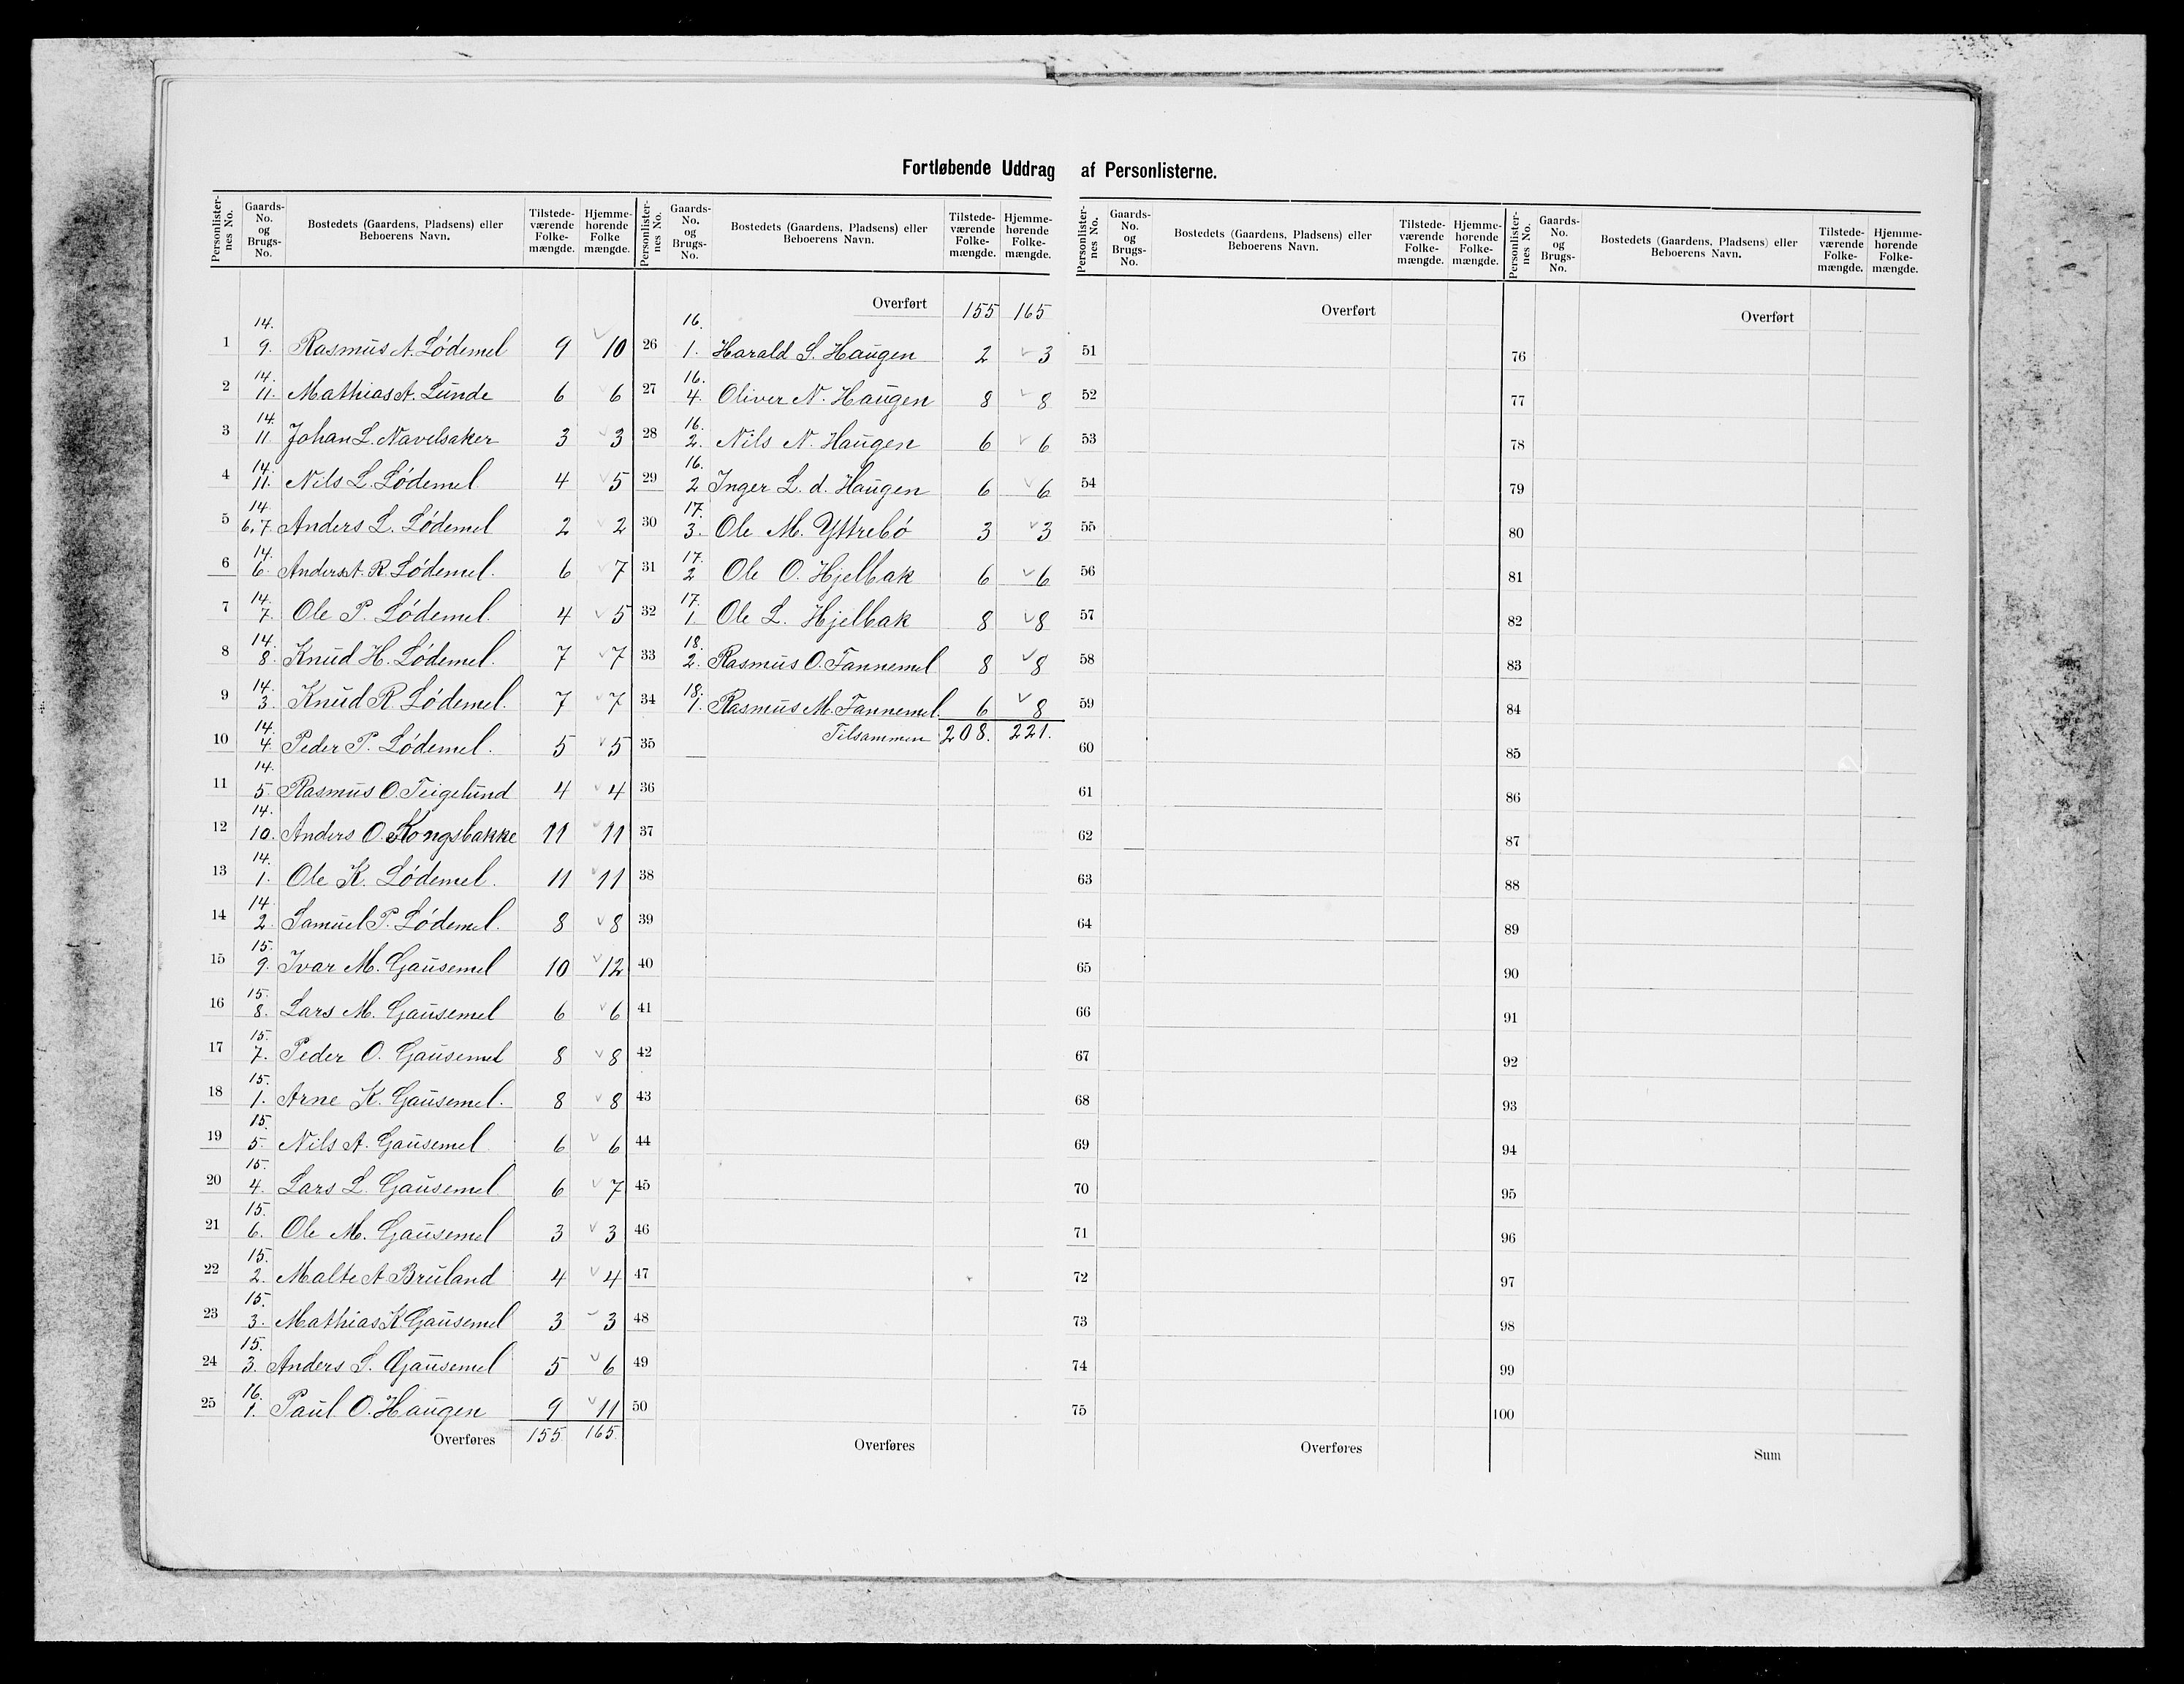 Fortløbende Uddrag af Personlisterne.
Personlister-nes No. Gaards-No. og Brugs-No. Bostedets (Gaardens, Pladsens) eller Beboerens Navn. Tilstede-værende Folke-mængde. Hjemme-hørende Folke mængde.
1 14. 9. Rasmus A. Lødemel 9 10
2 14. 11. Mathias A. Lunde 6 6
3 14. 11. Johan L. Navelsaker 3 3
4 14. 11. Nils L. Lødemel 4 5
5 14. 6,7 Anders L. Lødemel 2 2
6 14. 6. Anders A. R. Lødemel. 6 7
7 14. 7. Ole P. Lødemel. 4 5
8 14. 8. Knud H. Lødemel. 7 7
9 14. 3. Knud R. Lødemel. 7 7
10 14. 4. Peder P. Lødemel. 5 5
11 14. 5. Rasmus O. Teigelund 4 4
12 14. 10. Anders O. Kongsbakke 11 11
13 14. 1. Ole K. Lødemel. 11 11
14 14. 2. Samuel P. Lødemel. 8 8
15 15. 9. Ivar M. Gausemel 10 12
16 15. 8. Lars M. Gausemel 6 6
17 15. 7. Peder O. Gausemel 8 8
18 15. 1. Arne K. Gausemel. 8 8
19 15. 5. Nils A. Gausemel 6 6
20 15. 4. Lars L. Gausemel 6 7
21 15. 6. Ole M. Gausemel 3 3
22 15. 2. Malte A. Bruland 4 4
23 15. 3. Mathias K. Gausemel 3 3
24 15. 3. Anders S. Gausemel 5 6
25 16. 1. Paul O. Haugen 9 11
Overføres 155 165.
Personlister-nes No. Gaards-No. og Brugs-No. Bostedets (Gaardens, Pladsens) eller Beboerens Navn. Tilstede-værende Folke-mængde. Hjemme-hørende Folke-mængde.
Overført 155 165
26 16. 1. Harald S. Haugen 2 3
27 16. 4. Oliver N. Haugen 8 8
28 16. 2. Nils N. Haugen 6 6
29 16. 2 Inger L. d. Haugen 6 6
30 17. 3. Ole M. Yttrebø 3 3
31 17. 2 Ole O. Hjelbak 6 6
32 17. 1. Ole L. Hjelbak 8 8
33 18. 2. Rasmus O. Tannemel 8 8
34 18. 1. Rasmus M. Tannemel. 6 8
35 Tilsammen 208. 221.
36
37
38
39
40
41
42
43
44
45
46
47
48
49
50
Overføres
Personlister-nes No. Gaards-No. og Brugs-No. Bostedets (Gaardens, Pladsens) eller Beboerens Navn. Tilstede-værende Folke-mængde. Hjemme-hørende Folke-mængde.
Overført
51
52
53
54
55
56
57
58
59
60
61
62
63
64
65
66
67
68
69
70
71
72
73
74
75
Overføres
Personlister-nes No. Gaards-No. og Brugs-No. Bostedets (Gaardens, Pladsens) eller Beboerens Navn. Tilstede-værende Folke-mængde. Hjemme-hørende Folke-mængde.
Overført
76
77
78
79
80
81
82
83
84
85
86
87
88
89
90
91
92
93
94
95
96
97
98
99
100
Sum